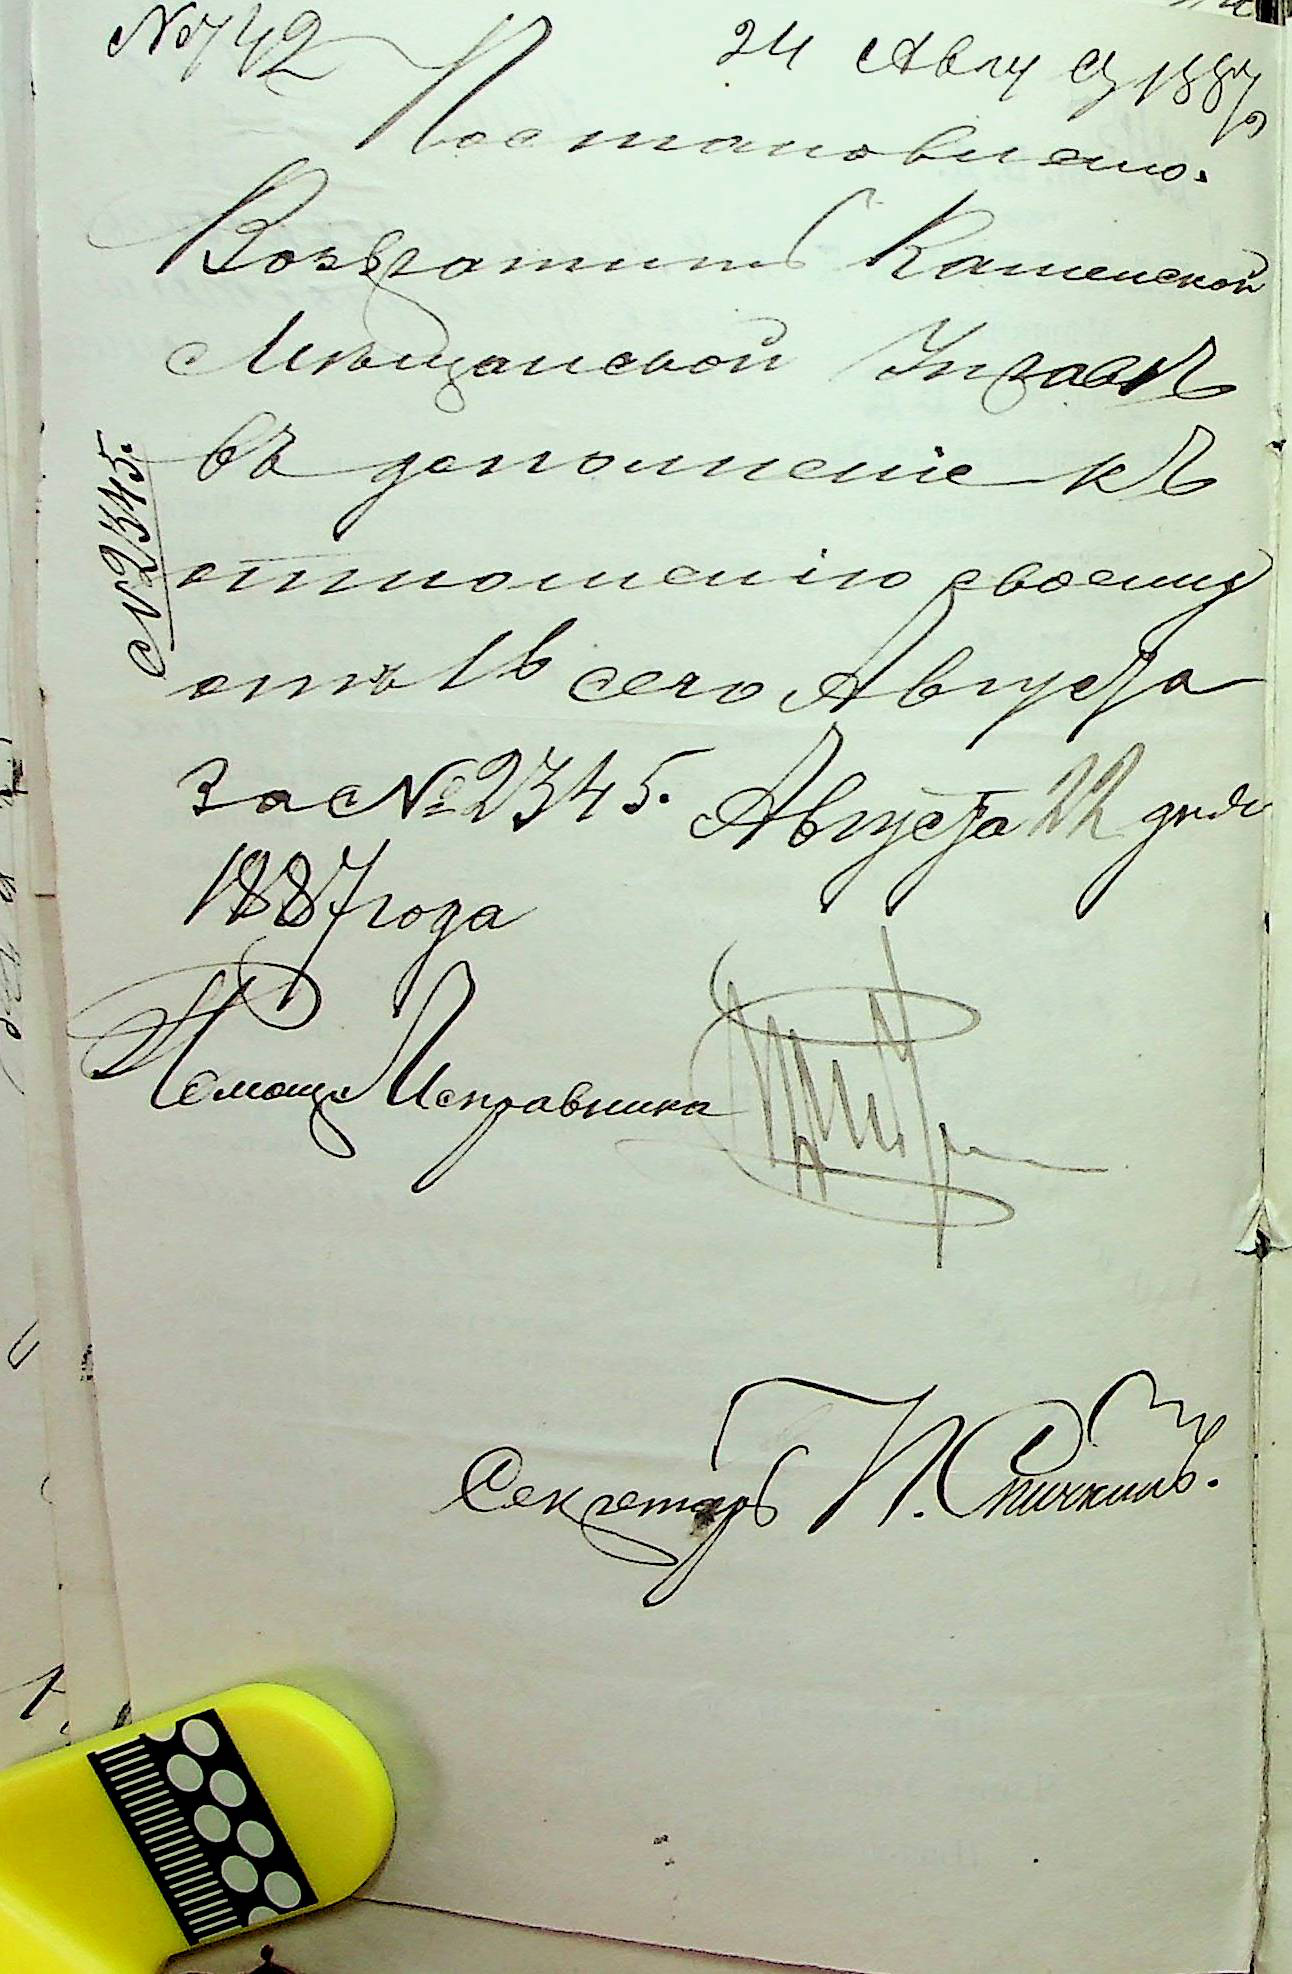 №742 24 Авгу ст 1887
Постановлено.
Возвратить Каменской
Мѣщанской Управѣ
въ дополненіе къ
отношенію своему
отъ 16 сего Августа
за №2345. Августа 22 дня
1887 года
Помощ. Исправника
Секретарь П. Спичкинъ.
№2345.